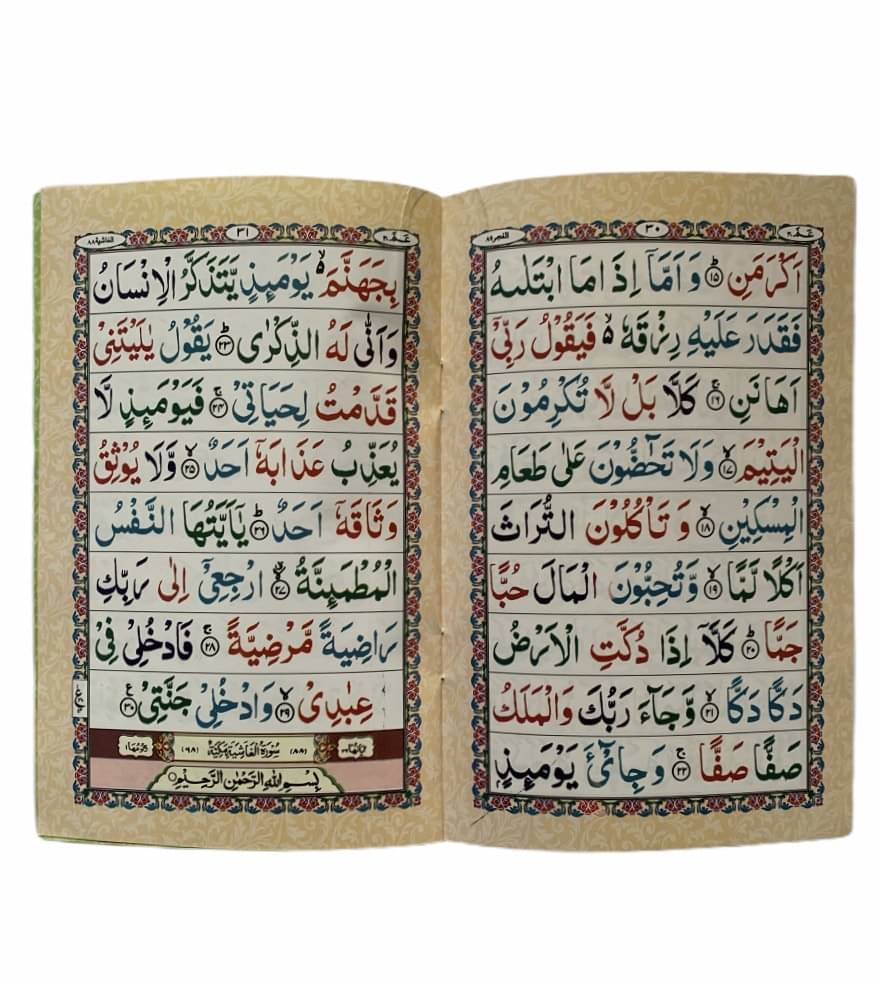 عَمَّ ٣٠
٣٠
الفجر ٨٩
اَكْرَمَنِ ؕ﴿۱۵﴾ وَ اَمَّاۤ اِذَا مَا ابْتَلٰىهُ
فَقَدَرَ عَلَيْهِ رِزْقَهٗ ۙ فَيَقُوْلُ رَبِّيْۤ
اَهَانَنِ ۚ﴿۱۶﴾ كَلَّا بَلْ لَّا تُكْرِمُوْنَ
الْيَتِيْمَ ۙ﴿۱۷﴾ وَلَا تَحٰٓضُّوْنَ عَلٰى طَعَامِ
الْمِسْكِيْنِ ۙ﴿۱۸﴾ وَ تَاْكُلُوْنَ التُّرَاثَ
اَكْلًا لَّمًّا ۙ﴿۱۹﴾ وَّتُحِبُّوْنَ الْمَالَ حُبًّا
جَمًّا ؕ﴿۲۰﴾ كَلَّاۤ اِذَا دُكَّتِ الْاَرْضُ
دَكًّا دَكًّا ۙ﴿۲۱﴾ وَّجَآءَ رَبُّكَ وَالْمَلَكُ
صَفًّا صَفًّا ۚ﴿۲۲﴾ وَ جِایْٓءَ يَوْمَئِذٍۭ
٣١
الغاشية ٨٨
بِجَهَنَّمَ ۙ يَوْمَئِذٍ يَّتَذَكَّرُ الْاِنْسَانُ
وَاَنّٰى لَهُ الذِّكْرٰى ؕ﴿۲۳﴾ يَقُوْلُ يٰلَيْتَنِيْ
قَدَّمْتُ لِحَيَاتِيْ ۚ﴿۲۴﴾ فَيَوْمَئِذٍ لَّا
يُعَذِّبُ عَذَابَهٗۤ اَحَدٌ ۙ﴿۲۵﴾ وَّلَا يُوْثِقُ
وَثَاقَهٗۤ اَحَدٌ ؕ﴿۲۶﴾ يٰۤاَيَّتُهَا النَّفْسُ
الْمُطْمَئِنَّةُ ۙ﴿۲۷﴾ ارْجِعِيْۤ اِلٰى رَبِّكِ
رَاضِيَةً مَّرْضِيَّةً ۚ﴿۲۸﴾ فَادْخُلِيْ فِيْ
عِبٰدِيْ ۙ﴿۲۹﴾ وَادْخُلِيْ جَنَّتِيْ ﴿۳۰﴾ ع
(٨٨) سُوْرَةُ الْغَاشِيَةِ مَكِّيَّةٌ (٦٨)
بِسْمِ اللّٰهِ الرَّحْمٰنِ الرَّحِيْمِ